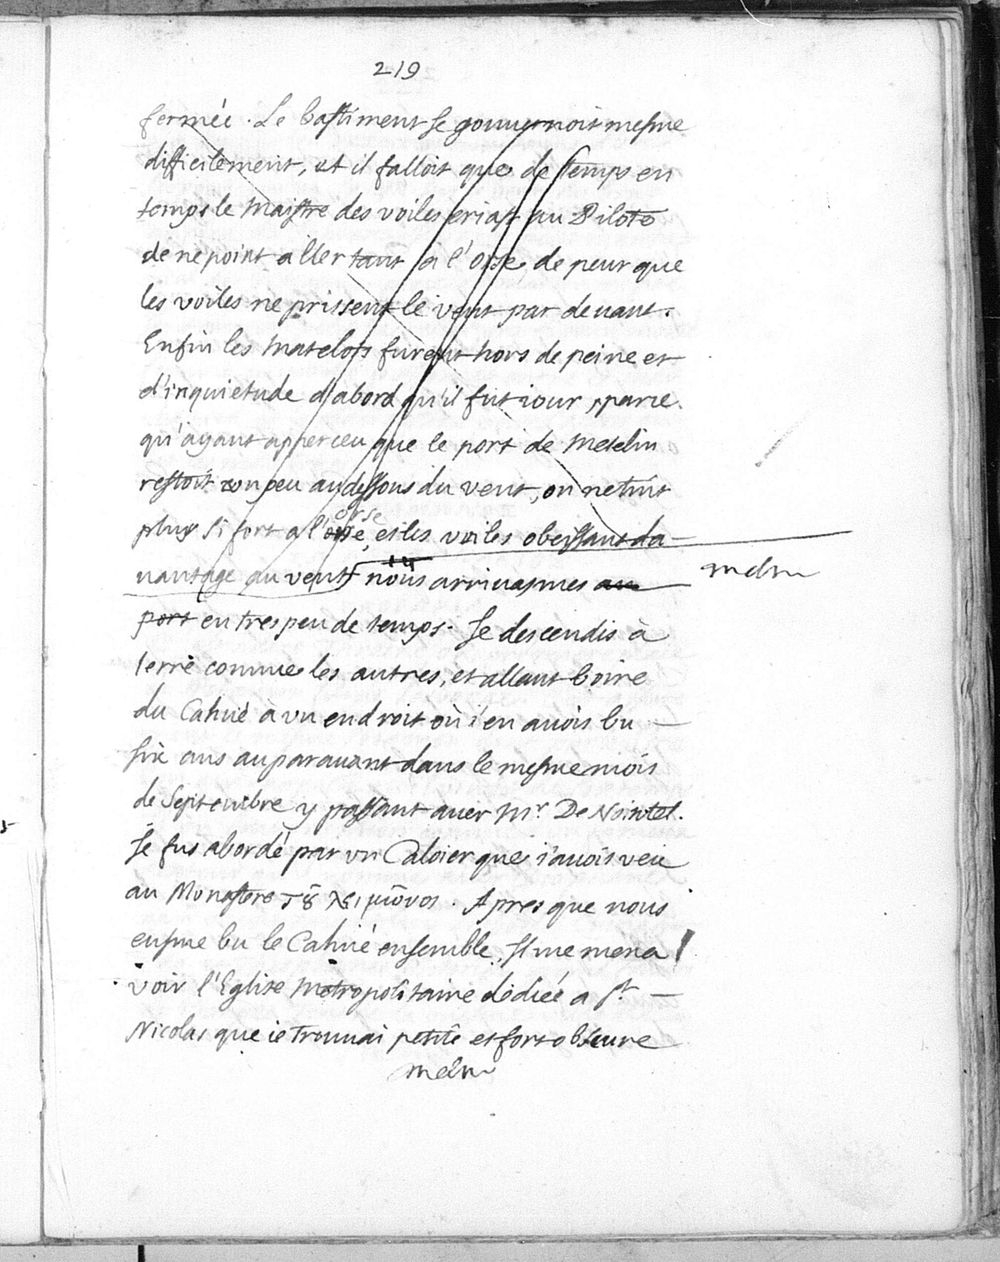 219
fermée. Le bastiment se gouuernoit mesme
difficilement, et il falloit que de temps en
temps le Maistre des voiles criast au Pilote
de ne point aller tant a l'orse de peur que
les voiles ne prissent le vent par deuant.
Enfin les matelots furent hors de peine et
d'inquietude d'abord qu'il fut iour parce
qu'ayant apperceu que le port de Metelin
restoit un peu audessous du vent, on ne tint
plus si fort a l'orse, et les voiles obeissant da-
uantage au vent nous arriuasmes au
port en tres peu de temps. Je descendis à
terre comme les autres, et allant boire
du Cahué à vn endroit où i'en auois bu
six ans auparauant dans le mesme mois
de Septembre y passant auec Mr. De Nointel.
Je fus abordé par vn Caloier que i'auois veu
au Monastere τȣ̃ λειμῶνος. Apres que nous
eusme bu le Cahué ensemble, Il me mena
voir l'Eglise Metropolitaine dédiée a St
Nicolas que ie trouuai petite et fort obscure